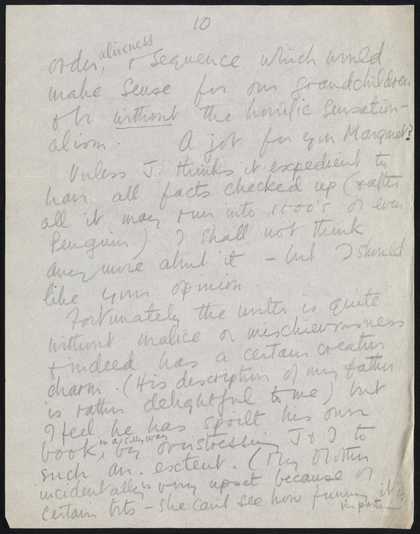 10
order, aliveness & sequence which would
make sense for our grandchildren
& be without the horrific sensation-
alism. A job for you Margaret?
Unless J. thinks it expedient to
have all facts checked up (& after
all it may run into 1000's or even
Penguin) I shall not think
any more about it – but I should
like your opinion
Fortunately the writer is quite
without malice or mischievousness
& indeed has a certain creative
charm. (His description of my father
is rather delightful to me) but
I feel he has spoilt his own
book, by overstressing J & I to
such an extent. (My Mother
incidentally is very upset because of
certain bits – she can't see how funny it is